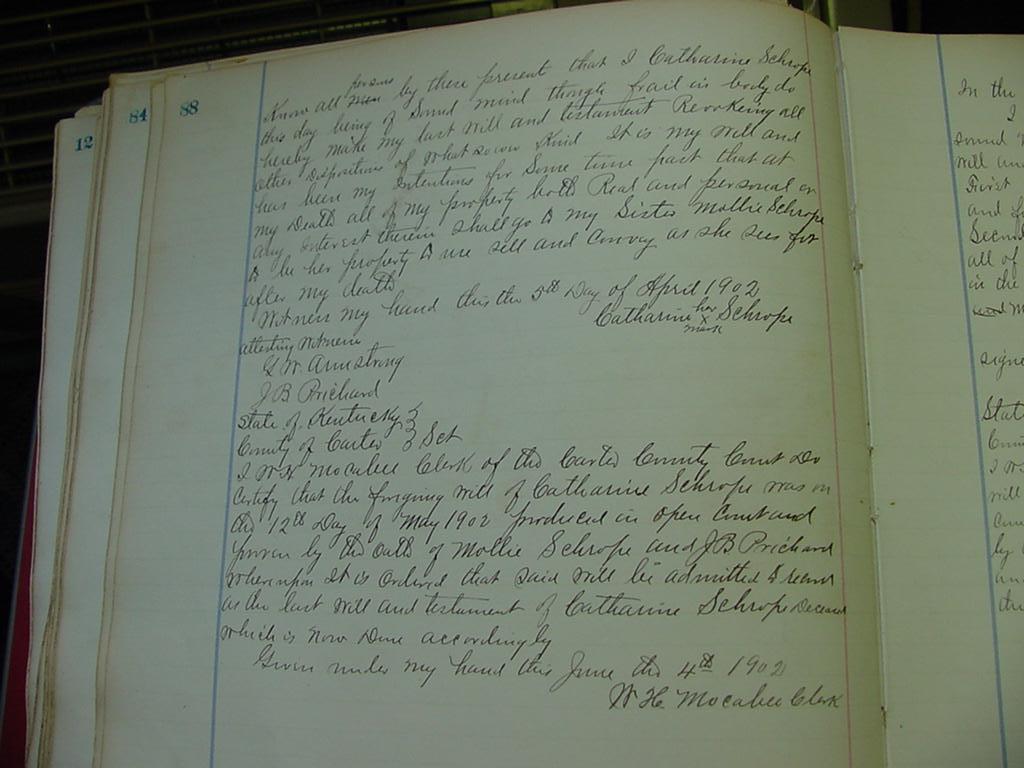 12
84
88
persons
Know all men by these present that I Catharine Schrope
this day being of Sound mind though frail in body do
hereby make my last will and testament Revokeing all
other dispositions of what soever Kind It is my will and
has been my Intentions for Some time past that at
my Death all of my property both Real and personal or
any interest therein shall go to my Sister Mollie Schrope
to be her property to use sell and Convey as she sees fit
after my death
Witness my hand this the 5th Day of April 1902
Catharine her x mark Schrope
attesting Witness
G W. Armstrong
J B Prichard
State of Kentucky }
County of Carter } Sct
I W H Mocabee Clerk of the Carter County Court Do
Certify that the forgoing will of Catharine Schrope was on
the 12th Day of May 1902 produced in open Court and
proven by the oath of Mollie Schrope and J B Prichard
Whereupon It is Ordered that said will be admitted to record
as the last will and testament of Catharine Schrope Deceased
which is now Done accordingly
Given under my hand this June the 4th 1902
W H Mocabee Clerk
In the
I
sound
will an
First
and f
Second
all of
in the
and m
signe
Stat
I W.
will
by
an